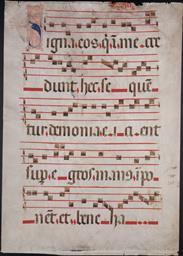 Signa.eos.q̃.ī.me.cre
dunt.hec.se quē
tur.demonia.e i ci ent
sup.e gros.man9.īpo
nēt.et.bene ha